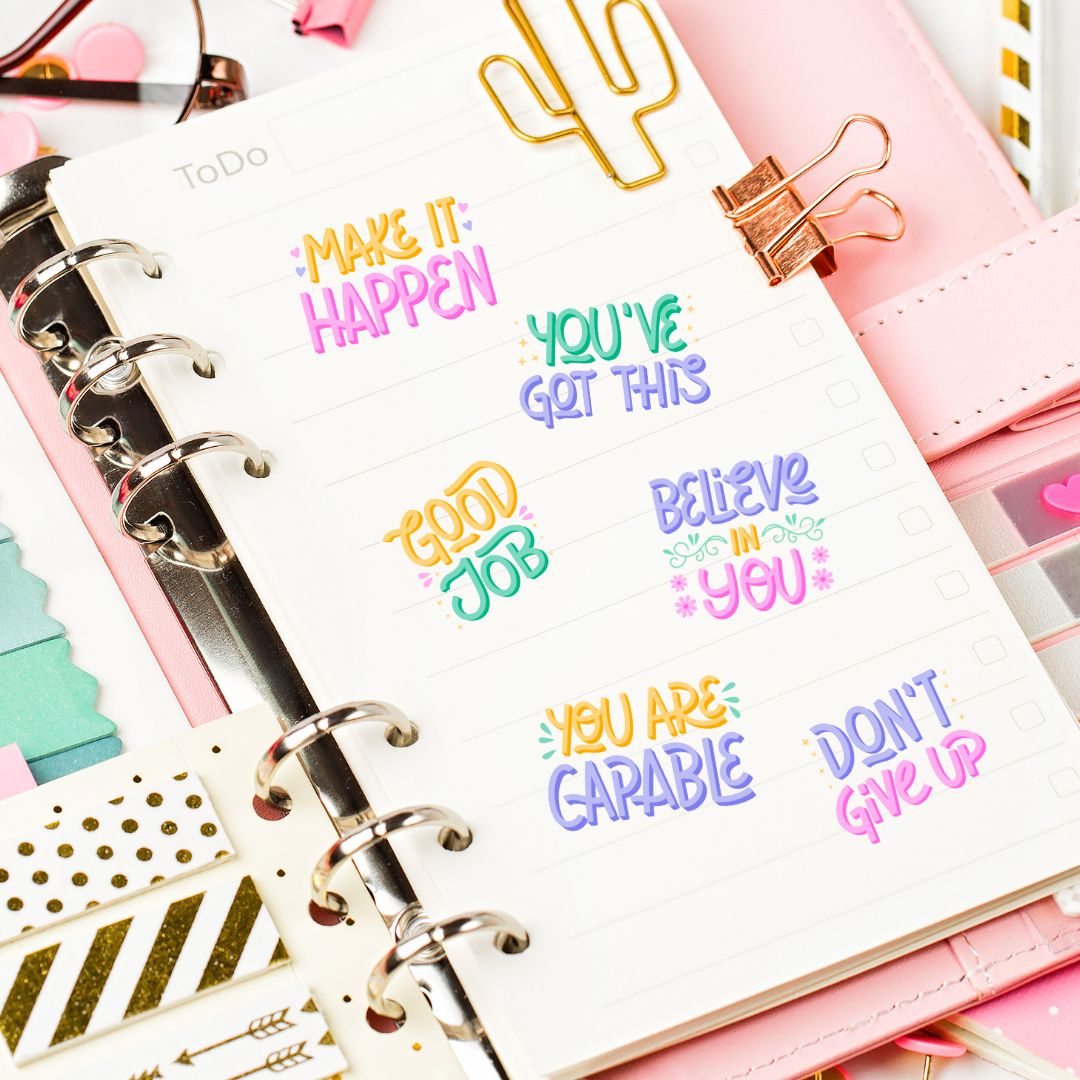 ToDo
MAKE IT
HAPPEN
YOU'VE
GOT THIS
GOOD
JOB
BELiEVe
IN
YOU
YOU ARE
CAPABLE
DON'T
GiVe UP